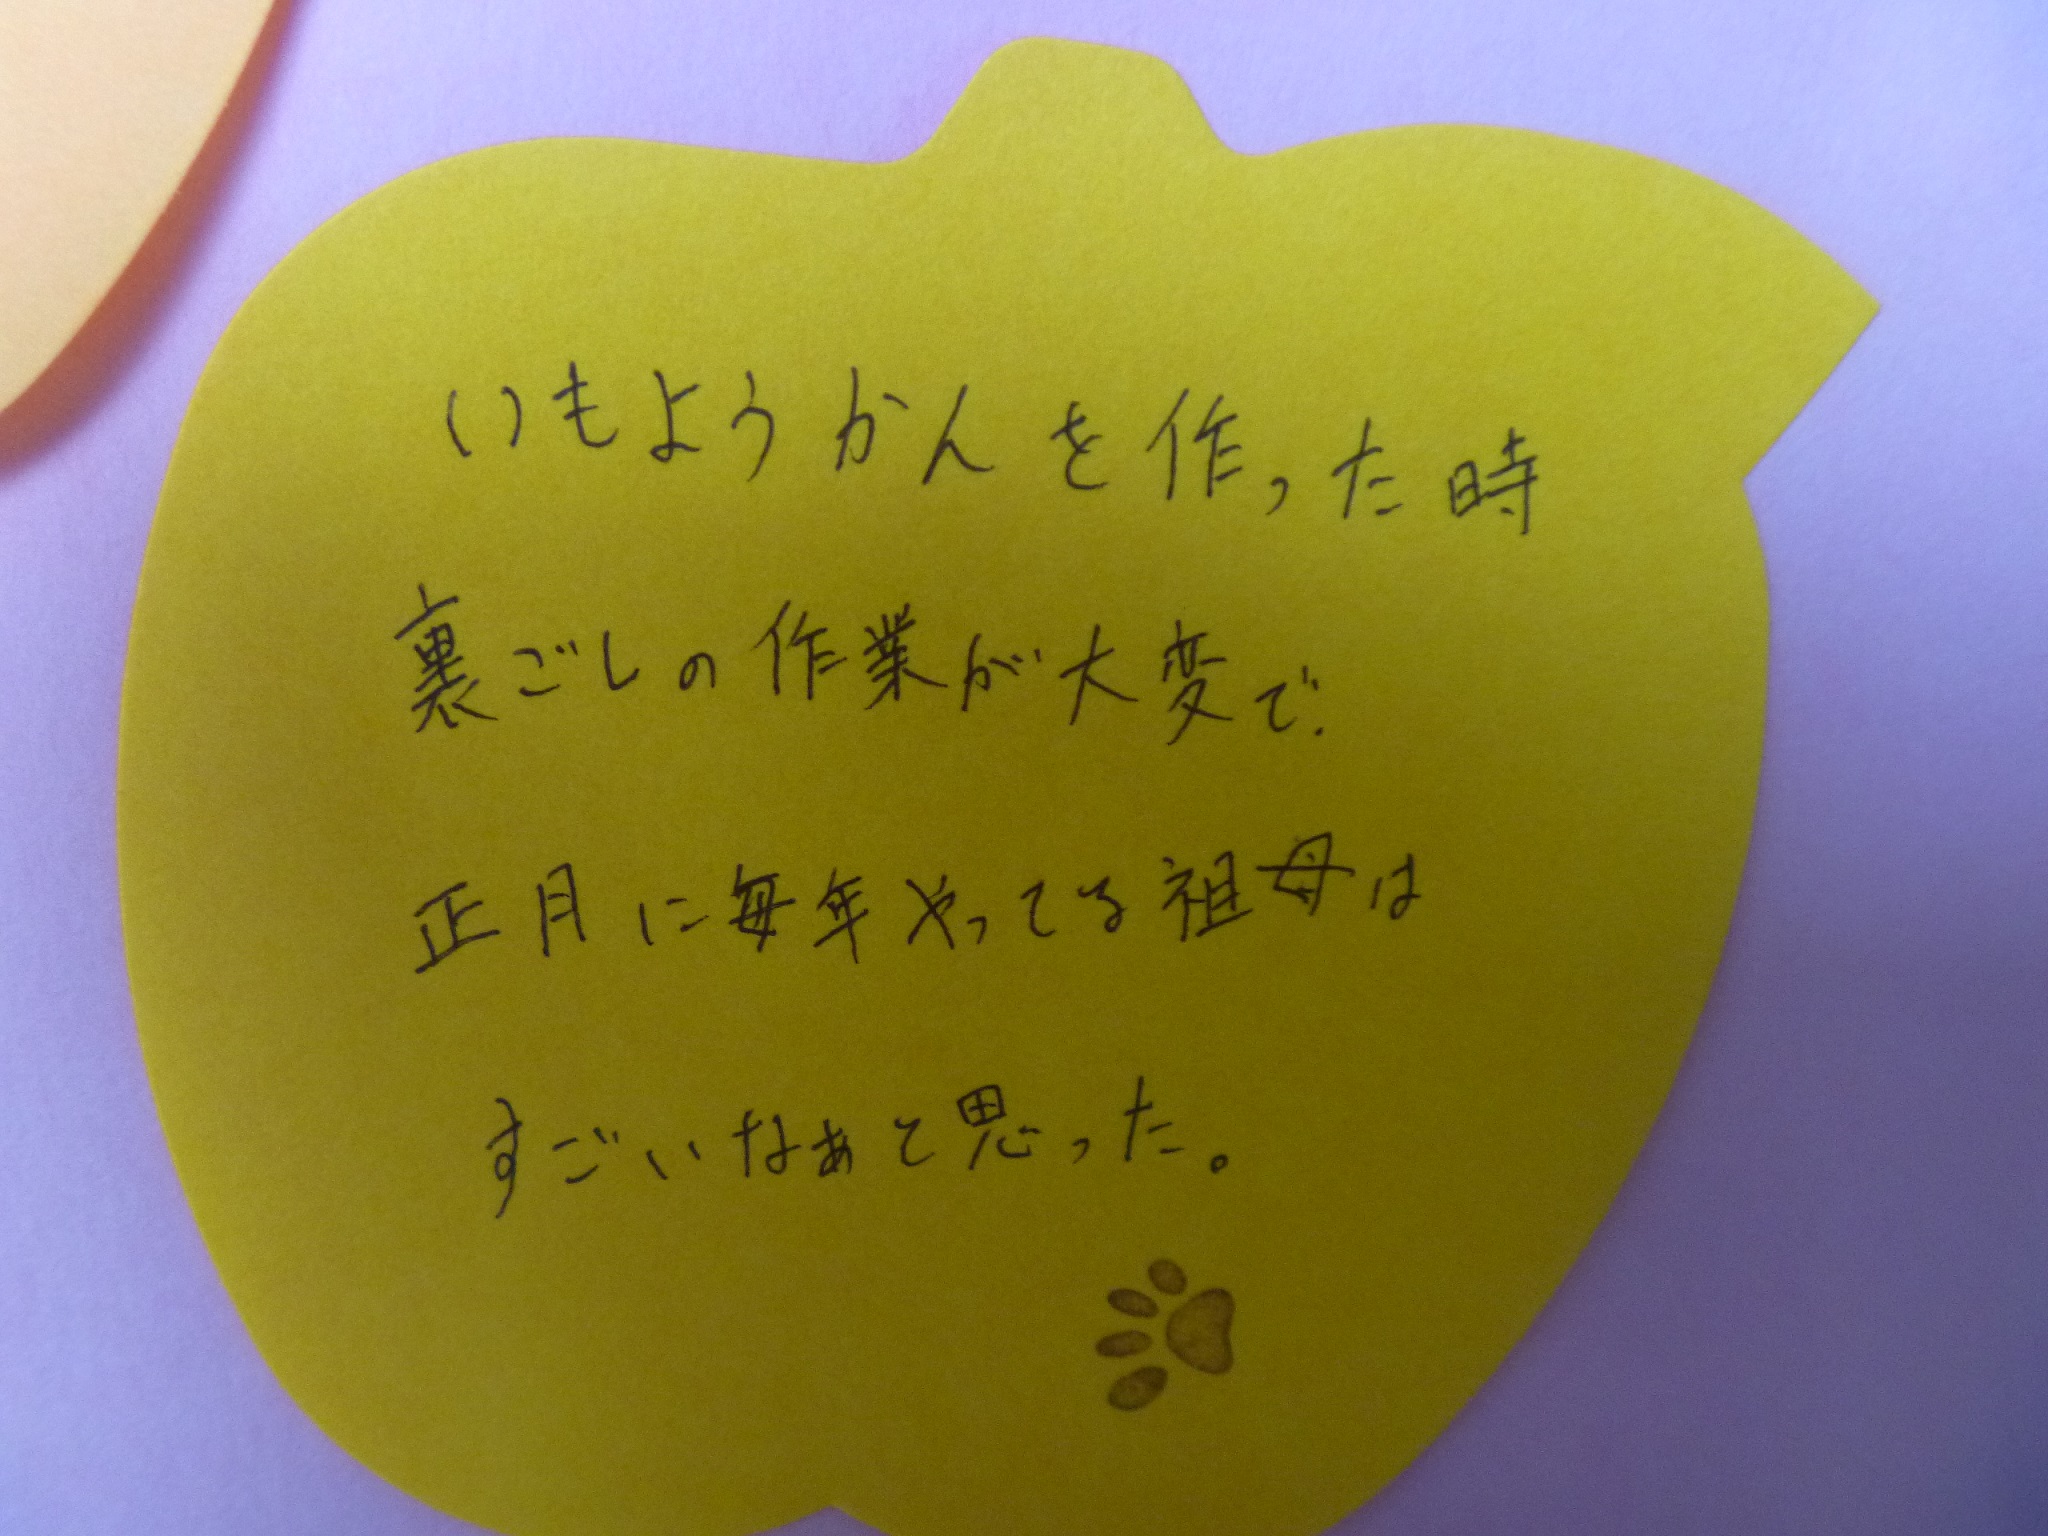 いもようかんを作った時
裏ごしの作業が大変で、
正月に毎年やってる祖母は
すごいなぁと思った。